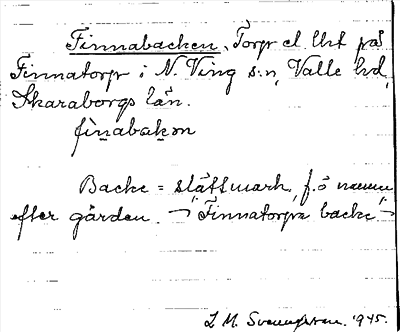 Finnabacken, Torp el. Uret på
Finnatorp i N. Ving s:n, Valle hd,
Skaraborgs län.
finabakən
Backe = slättmark, f.ö namn
efter gården. ¬ "Finnatorpa backe" ¬
L M. Svenungsson. 1945.